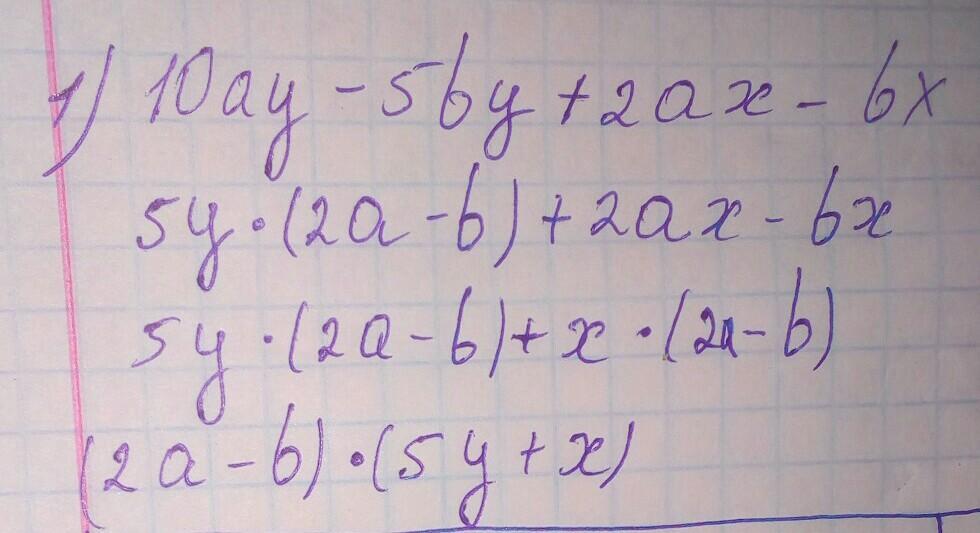 1) 10ay - 5by + 2ax - bx
5y·(2a - b) + 2ax - bx
5y·(2a - b) + x·(2a - b)
(2a - b)·(5y + x)